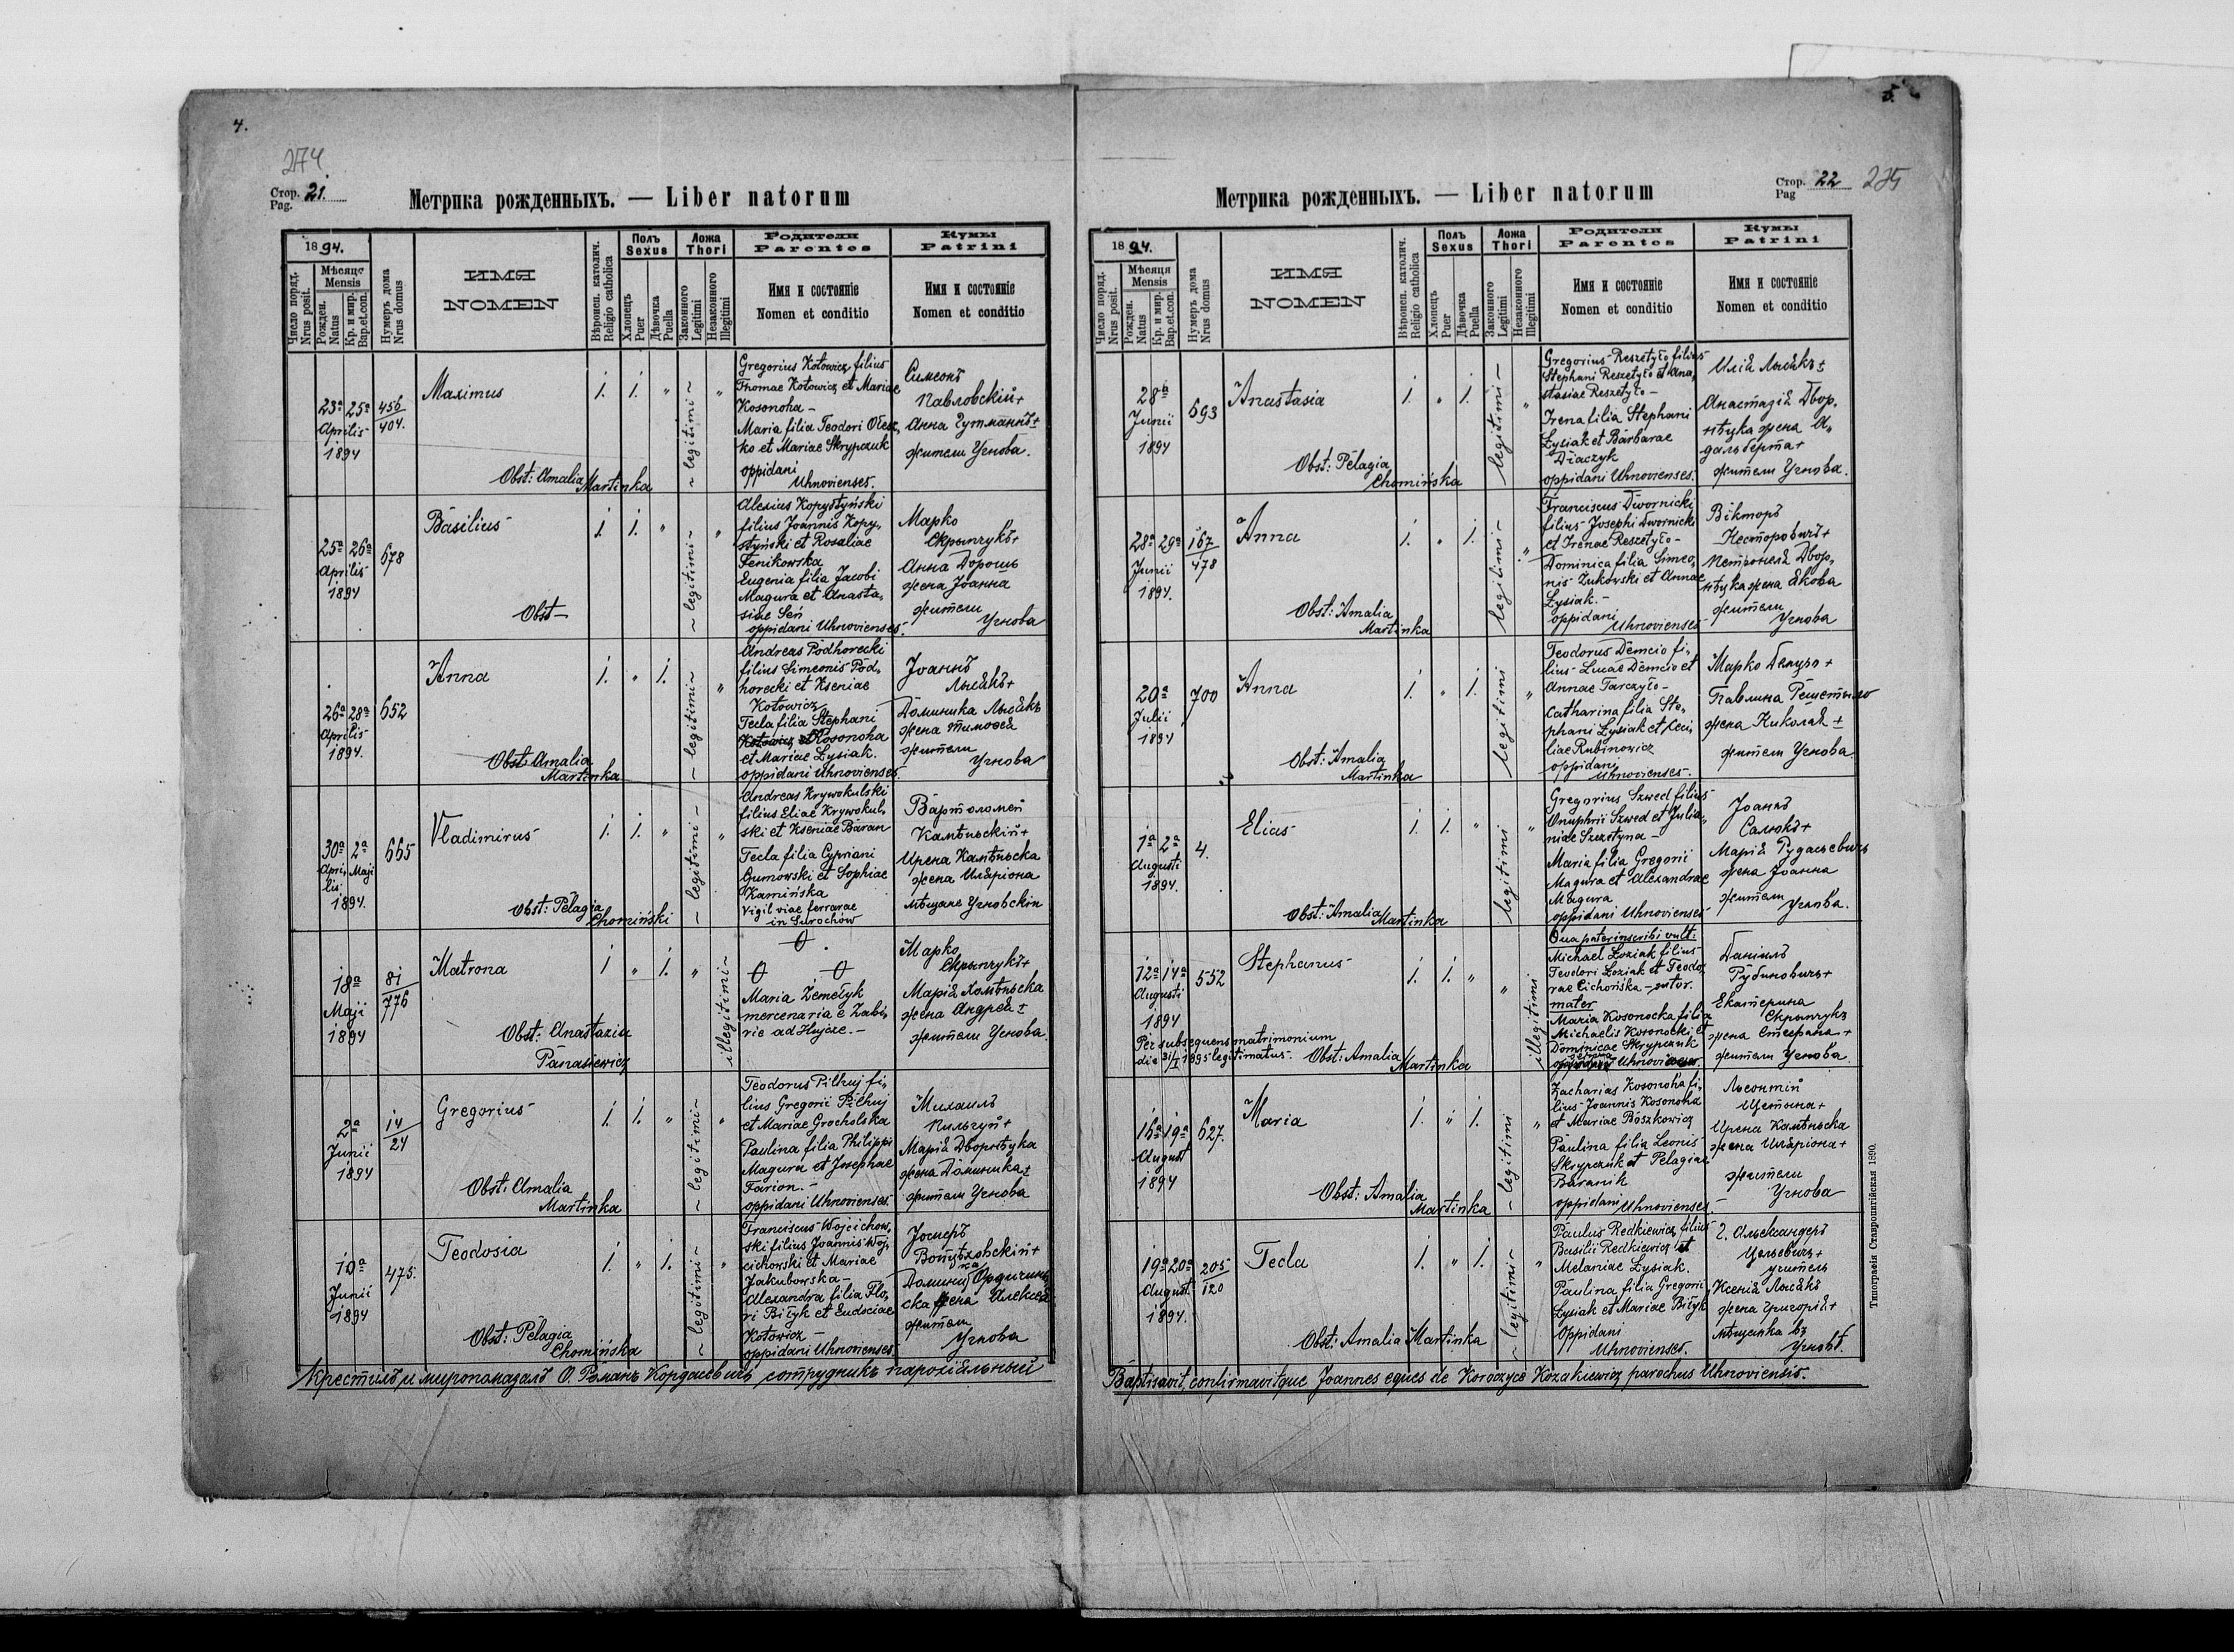 4.
274.
Стор. 21.
Pag.
Метрика рожденныхъ. — Liber natorum
1894.
Число поряд.
Nrus posit.
Мѣсяцъ
Mensis
Рожден.
Natus
Кр. и мир.
Bap.et.con.
Нумеръ дома
Nrus domus
ИМЯ
NOMEN
Вѣроисп. католич.
Religio catholica
Полъ
Sexus
Хлопецъ
Puer
Дѣвочка
Puella
Ложа
Thori
Законного
Legitimi
Незаконного
Illegitimi
Родители
Parentes
Имя и состояніе
Nomen et conditio
Кумы
Patrini
Имя и состояніе
Nomen et conditio
23ª 25ª
Aprilis
1894
456
404.
Maximus
Obst: Amalia Martinka
1. 1. "
~ legitimi ~
"
Gregorius Kotowicz filius
Thomae Kotowicz et Mariae
Kosonoha –
Maria filia Teodori Olesz,
ko et Mariae Skrypczuk
oppidani
Uhnovienses.
Симеонъ
Павловскій+
Анна Гутманнъ+
жители Угнова.
25ª 26ª
Aprilis
1894
678
Basilius
Obst –
1. 1. "
~ legitimi ~
"
Alexius Kopystyński
filius Joannis Kopy,
styński et Rosaliae
Fenikowska
Eugenia filia Jacobi
Magura et Anasta,
siae Seń
oppidani Uhnovienses.
Марко
Скрыпчукъ+
Анна Дорошь
жена Іоанна
жители
Угнова
26ª 28ª
Aprilis
1894.
652
Anna
Obst: Amalia
Martinka
1. " 1.
~ legitimi ~
"
Andreas Podhorecki
filius Simeonis Pod,
horecki et Kseniae
Kotowicz
Tecla filia Stephani
Kotowicz et Kosonoha
et Mariae Łysiak.
oppidani Uhnovienses.
Іоаннъ
Лысѣкъ+
Доминика Лысѣкъ
жена Тимофея
жители
Угнова
30ª 2ª
Apri, Maji
lis
1894.
665
Vladimirus
Obst: Pelagia
Chomiński
1. 1. "
~ legitimi ~
"
Andreas Krywokulski
filius Eliae Krywokul,
ski et Kseniae Baran
Tecla filia Cypriani
Gumowski et Sophiae
Kamińska
Vigil viae ferrarae
in Surochów
Вартоломей
Камѣньскій+
Ирена Камѣньска
жена Иляріона
мѣщане Угновскіи
18ª
Maji
1894
81
776
Matrona
Obst: Anastazia
Panasiewicz
1 " 1. "
illegitimi ~
0
0 0
Maria Zemełyk
mercenaria e Zabi,
rie ad Hujcze. –
Марко
Скрыпчукъ+
Марія Камѣньска
жена Андрея+
жители Угнова.
2ª
Junii
1894
14
24
Gregorius
Obst: Amalia
Martinka
1. 1. "
~ legitimi ~
"
Teodorus Pilhuj fi,
lius Gregorii Pilhuj
et Mariae Grocholska
Paulina filia Philippi
Magura et Josephae
Farion. –
oppidani Uhnovienses.
Михаилъ
Пильгуй+
Марія Дворнѣцка
жена Доминика+
жители Угнова
10ª
Junii
1894
475.
Teodosia
Obst: Pelagia
Chomińska
1. " 1.
~ legitimi ~
"
Franciscus Wojcichow,
ski filius Joannis Woj,
cichowski et Mariae
Jakubowska –
Alexandra filia Flo,
ri Biłyk et Eudociae
Kotowicz –
oppidani Uhnovienses
Іосифъ
Войцѣховскій+
Доминика Ордычинь
ска жена Алексея
жители
Угнова
Крестилъ и миропомазалъ О. Романъ Кордасевичъ сотрудникъ парохіяльный
5.
Метрика рожденныхъ. — Liber natorum
Стор. 22
Pag
275
1894.
Число поряд.
Nrus posit.
Мѣсяця
Mensis
Рожден.
Natus
Кр. и мир.
Bap.et.con.
Нумеръ дома
Nrus domus
ИМЯ
NOMEN
Вѣроисп. католич.
Religio catholica
Полъ
Sexus
Хлопецъ
Puer
Дѣвочка
Puella
Ложа
Thori
Законного
Legitimi
Незаконного
Illegitimi
Родители
Parentes
Имя и состояніе
Nomen et conditio
Кумы
Patrini
Имя и состояніе
Nomen et conditio
28ª
Junii
1894
693
Anastasia
Obst: Pelagia
Chomińska
1. " 1.
legitimi ~
"
Gregorius Reszetyło filius
Stephani Reszetyło et Ana,
stasiae Reszetyło –
Irena filia Stephani
Łysiak et Barbarae
Diaczyk
oppidani Uhnovienses.
Илія Лысѣкъ+
Анастазія Двор,
нѣцка жена А,
дальберта+
жители Угнова.
28ª 29ª
Junii
1894.
167
478
Anna
Obst: Amalia
Martinka
1. " 1.
legitimi ~
"
Franciscus Dwornicki
filius Josephi Dwornicki
et Irenae Reszetyło –
Dominica filia Simeo,
nis Żukowski et Annae
Łysiak. –
oppidani
Uhnovienses
Вікторъ
Несторовичъ+
Петронеля Двор,
нѣцка жена Якова
жители
Угнова
20ª
Julii
1894
700
Anna
Obst: Amalia
Martinka
1. " 1.
legitimi
"
Teodorus Demcio fi,
lius Lucae Demcio et
Annae Tarczyło –
Catharina filia Ste,
phani Łysiak et Ceci,
liae Rubinowicz
oppidani
Uhnovienses.
Марко +
Павлина Решетыло
жена Николая +
жители Угнова
1ª 2ª
Augusti
1894.
4.
Elias
Obst: Amalia Martinka
1. 1. "
legitimi
"
Gregorius Szwed filius
Onuphrii Szwed et Julia,
niae Szestyna –
Maria filia Gregorii
Magura et Alexandrae
Magura
oppidani Uhnovienses
Іоаннъ
Салюкъ+
Марія Рудасевичъ
жена Іоанна
жители
Угнова.
12ª 14ª
Augusti
1894
552
Stephanus
Per subsequens matrimonium
die 31/I 1895 legitimatus. Obst: Amalia Martinka
1. 1. "
"
illegitimi
Qua pater inscribi vult:
Michael Łoziak filius
Teodori Łoziak et Teodo,
rae Cichońska – sutor.
mater
Maria Kosonocka filia
Michaelis Kosonocki et
Dominicae Skrypczuk
Uhnov
Даніилъ
Рубиновичъ+
Екатерина
Скрыпчукъ
жена Стефана +
жители Угнова.
16ª 19ª
August
1894
627.
Maria
Obst: Amalia
Martinka
1. " 1.
~ legitimi
"
Zacharias Kosonoha fi,
lius Joannis Kosonoha
et Mariae Boszkowicz
Paulina filia Leonis
Skrypczuk et Pelagiae
Baranik
oppidani Uhnovienses. –
Льеонтій
Щестына+
Ирена Камѣньска
жена Иляріона+
жители
Угнова
19ª 20ª
August.
1894.
205
120
Tecla
Obst: Amalia Martinka
1. " 1.
~ legitimi ~
"
Paulus Redkiewicz filius
Basilii Redkiewicz et
Melaniae Łysiak.
Paulina filia Gregorii
Łysiak et Mariae Biłyk
Oppidani
Uhnovienses.
Г. Александеръ
Цѣльевичъ+
учитель
Ксенія Лысѣкъ
жена Григорія+
мѣщанка въ
Угновѣ.
Baptisavit, confirmavitque Joannes eques de Koroczyce Kozakiewicz parochus Uhnoviensis.
Типографія Ставропигійская 1890.